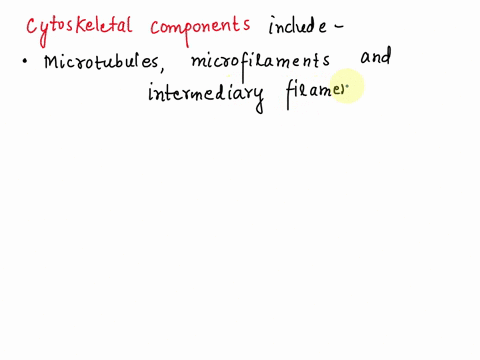 Cytoskeletal components include -
• Microtubules, microfilaments and
intermediary filame